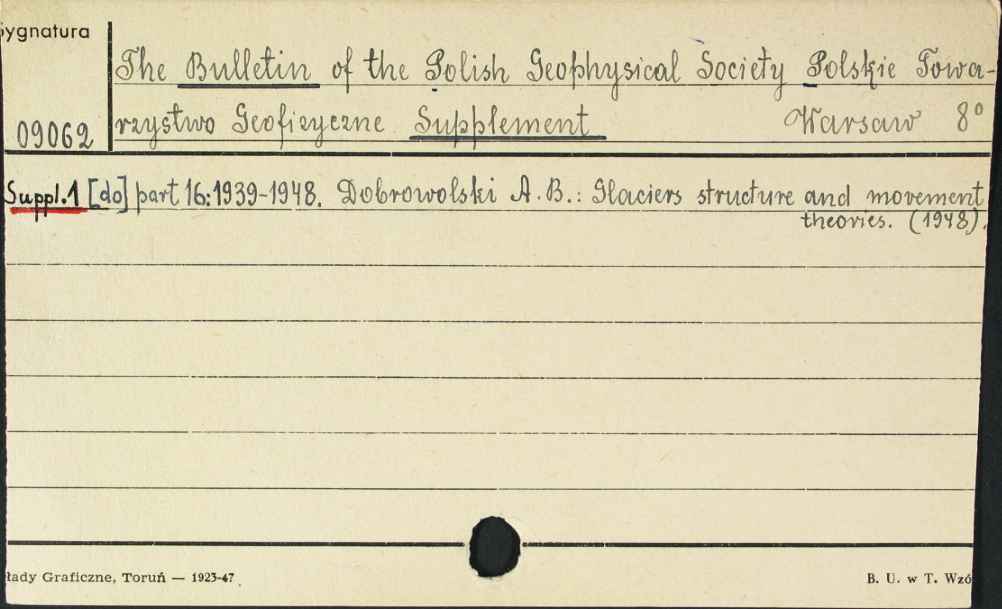 Sygnatura
The Bulletin of the Polish Geophysical Society Polskie Towa-
09062 rzystwo Geofizyczne Supplement Warsaw 8°
Suppl.1 [do] part 16:1939-1948. Dobrowolski A.B.: Glaciers structure and movement
theories. (1948).
łady Graficzne, Toruń — 1923-47.
B. U. w T. Wzó